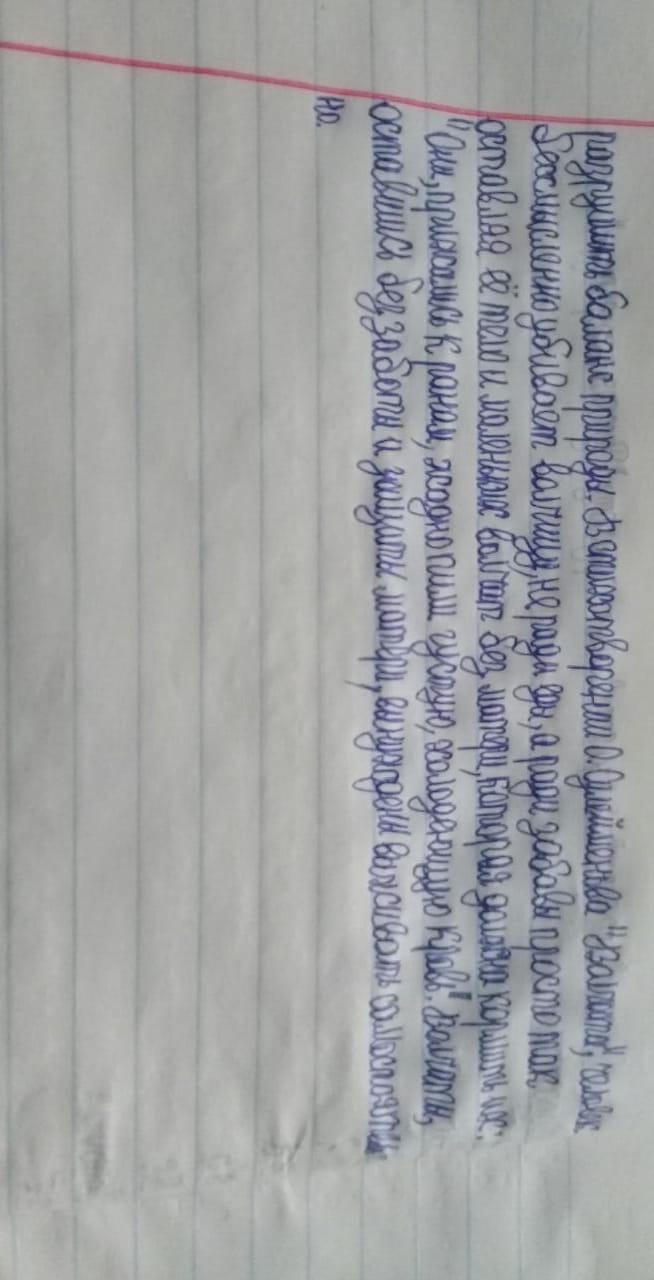 разрушить баланс природы. В стихотворении О. Сулейменова "Волчата", человек
бессмысленно убивает волчицу, не ради еды, а ради забавы просто так
оставляя её тело и маленьких волчат без матери, которая должна кормить их:
"Они, прижавшись к ранам, жадно пили густую, холодеющую кровь". Волчата,
оставшись без заботы и защиты матери, вынуждены выживать самостоятель-
но.